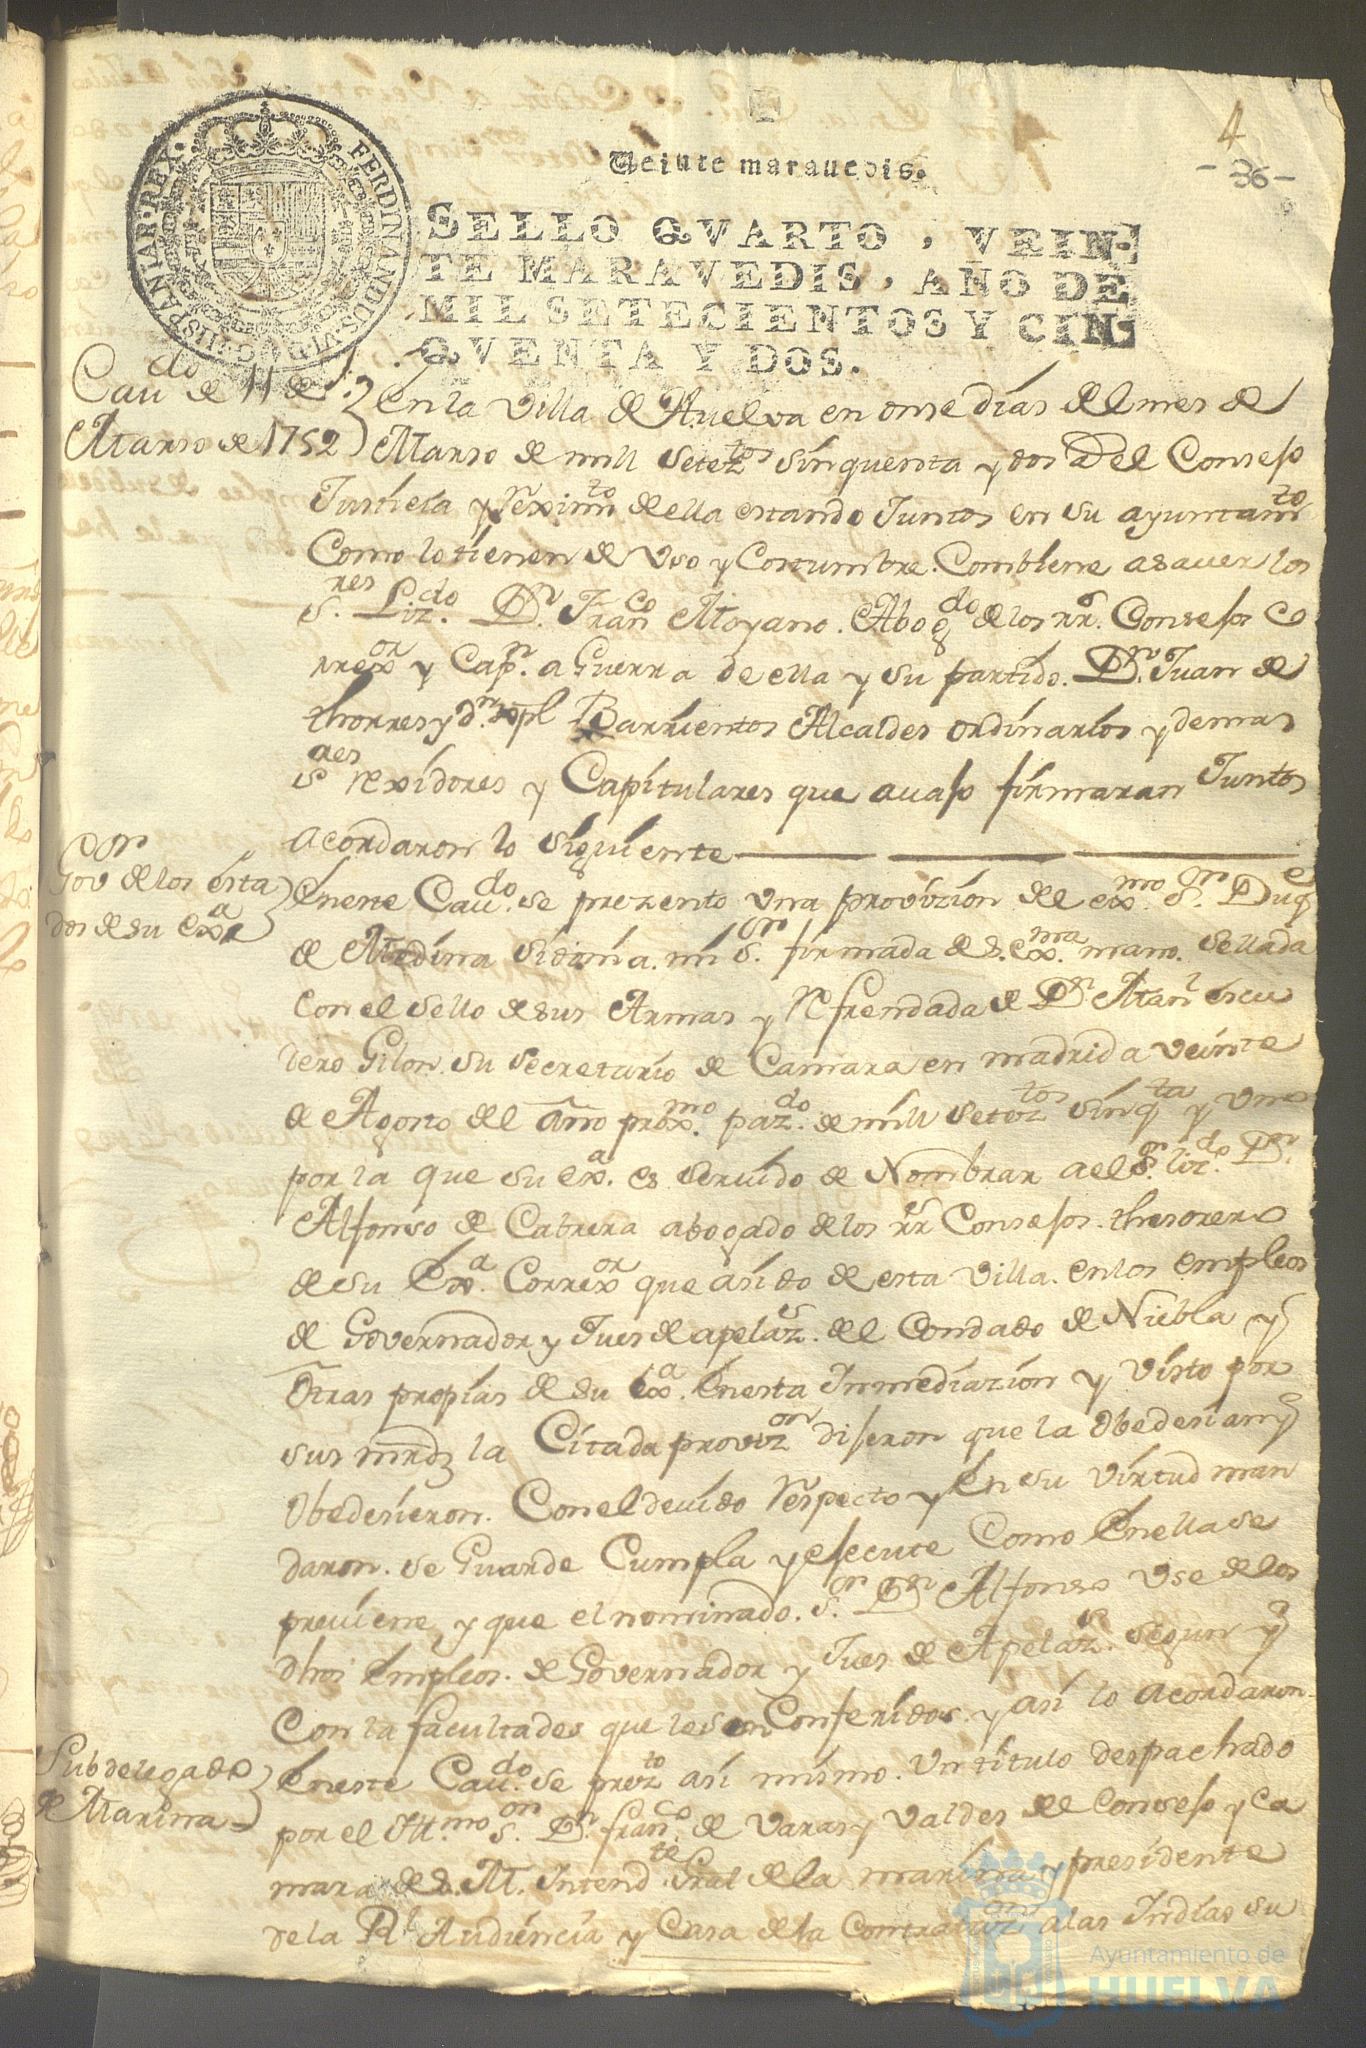 4
- 36 -
Veinte maravedis.
FERDINANDUS·VI·D·G·HISPANIAR·REX·
SELLO QVARTO, VEIN-
TE MARAVEDIS, AÑO DE
MIL SETECIENTOS Y CIN-
QVENTA Y DOS.
Caudo de 11 de
Marso de 1752
En la Villa de Huelva en onse días del mes de
Marso de mill setez.tos sinquenta y dos a. el Consejo
Justicia y Reximto de ella estando Juntos en su ayuntamto
Como lo tienen de Uso y Costumbre. Combiene asauer los
s.res Lizdo. Dn. Franco Moyano. Abogdo de los rrs. Consejos Co
rrexor y Capn. a Guerra de ella y su partido. Dn. Juan de
thorres y dn. xpl Barrientos Alcaldes ordinarios y demas
sres rexidores y Capitulares que auajo firmaran Juntos
acordaron lo siguiente
Cor
Gov de los esta
dos de su exa
Eneste Caudo. se prezento una provizion del exmo. Sor. Duqe
de Medina Sidonia. mi sor. firmada de s. exma. mano. sellada
con el sello de sus Armas y Refrendada de Dn Manl escu
dero Gilon. su secretario de Camara en madrid a veinte
de Agosto del año proxmo. pazdo. de mill setez.tos sinqta y uno
por la que su exa. es seruido de Nombrar a el sr. lizdo. Dn.
Alfonso de Cabrera abogado de los rrs Consejos. thesorero
de su Exa. Correxor que asido de esta Villa. en los empleos
de Governador y Jues de apelazs. del Condado de Niebla y
Otras propias de su exa. Enesta Inmediazion y Visto por
sus mrdz la Citada provizon dijeron que la Obedesian y
Obedesieron. Con el deuido Respecto y En su Virtud man
daron. se Guarde Cumpla y ejecute Como Enella se
preuiene y que el nominado. sor Dn Alfonso Use de los
dhos Empleos. de Governador y Jues de Apelazs. segun y
Con la facultades que le son Conferidos. y asi lo acordaron.
Subdelegado
de Marina
Eneste Caudo. se prezto asi mismo. Un titulo despachado
por el Illmo. sor. Dn. franco. de Varas y Valdes del Consejo y Ca
mara de s. M. Intendte. Gral de la marina y presidente
de la Rl Audiencia y Casa de la Contratazon a las Indias su
Ayuntamiento de
HUELVA